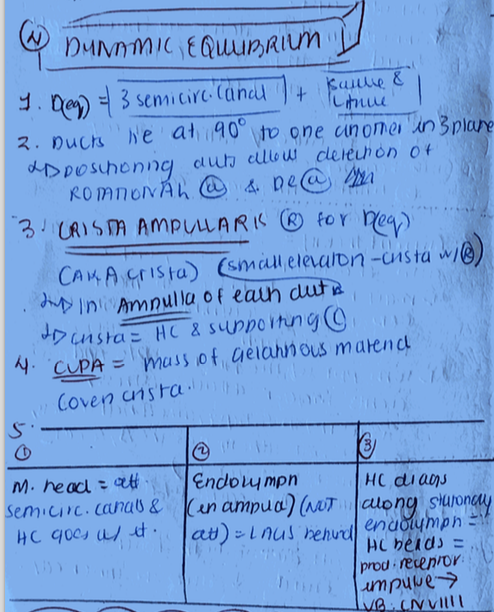 N DYNAMIC EQUILIBRIUM
1. D(eq) = 3 semicirc. canal + saccule & utricle
2. Ducts lie at 90° to one another in 3 plane
↳ positioning ducts allow detection of
ROTATIONAL @ & DE@
3. CRISTA AMPULLARIS (R) for D(eq)
(AKA crista) (small elevation - crista w/ (R))
↳ In Ampulla of each duct
↳ crista = HC & supporting (C)
4. CUPA = mass of gelatinous material
Cover crista.
5.
①
M. head = att.
semicirc. canals &
HC goes w/ it.
②
Endolymph
(in ampulla) (NOT
att) = LAGS behind
③
HC drags
along stationary
endolymph =
HC bends =
prod. receptor
impulse →
VB. CNVIIII